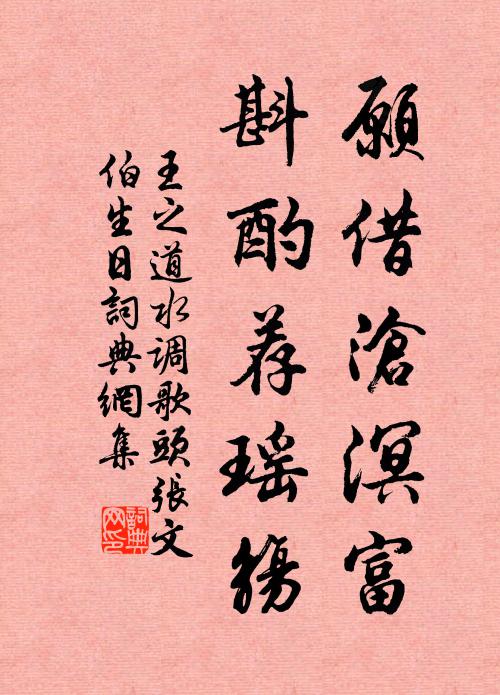 願借滄溟富
斟酌荐瑶觴
王之道水调歌頭張文
伯生日詞典網集
詞典
网印